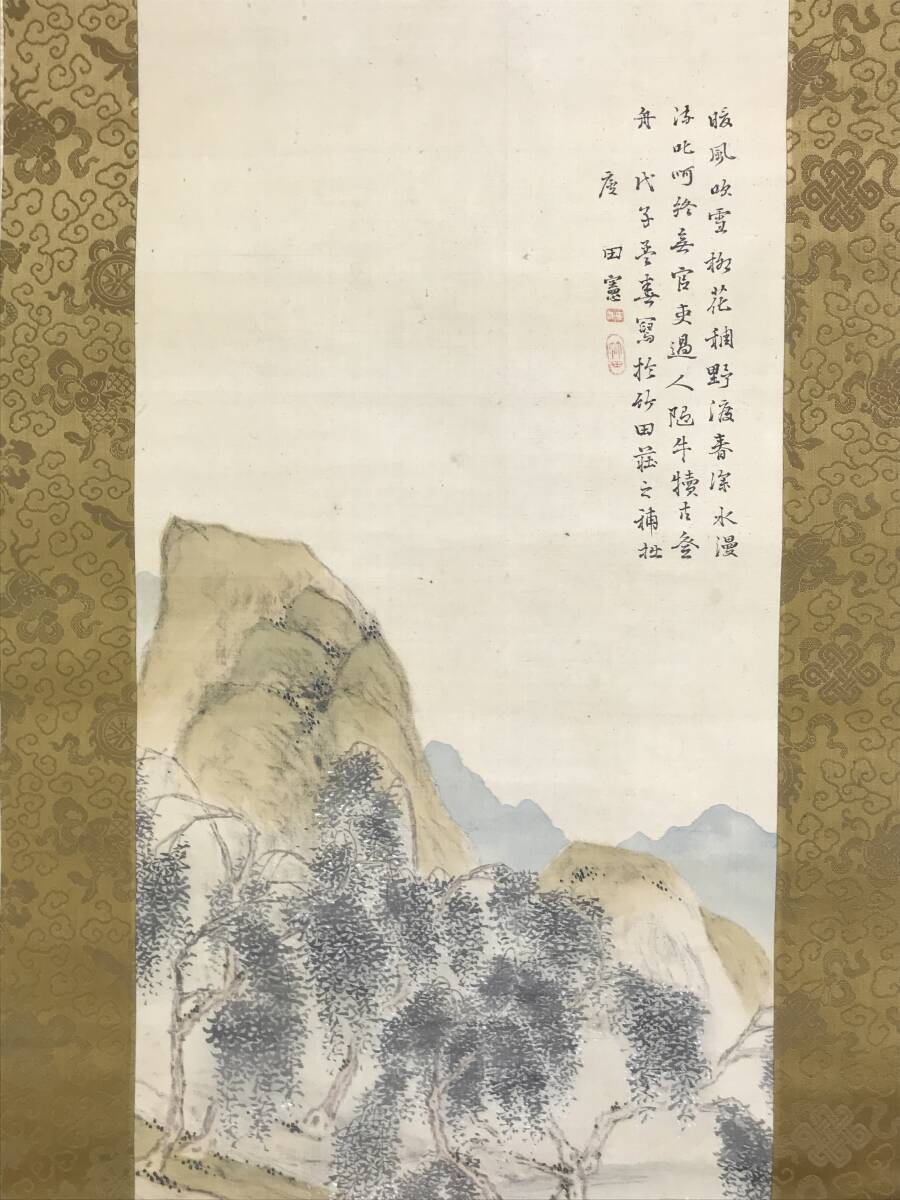 暖風吹雪柳花稠野渡春深水漫
流叱呵終無官吏過人随牛犢古登
舟 戊子孟春写於竹田荘之補拙
廬 田憲
竹田